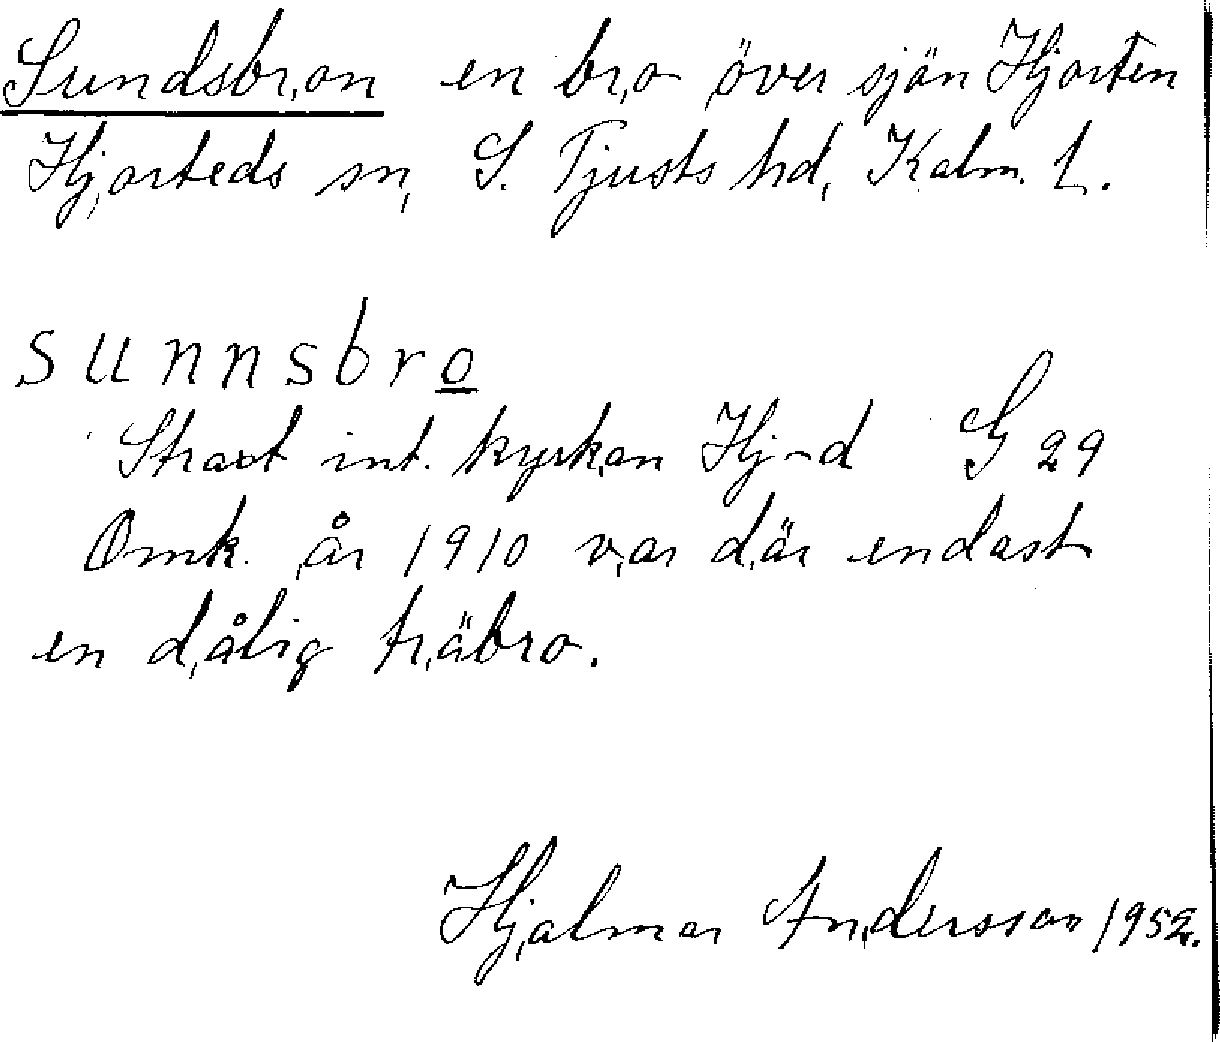 Sundsbron en bro över sjön Hjorten
Hjorteds sn, S. Tjusts hd, Kalm. L.
sunnsbro
Straxt int. kyrkan Hj-d G 29
Omk. år 1910 var där endast
en dålig träbro.
Hjalmar Andersson 1952.